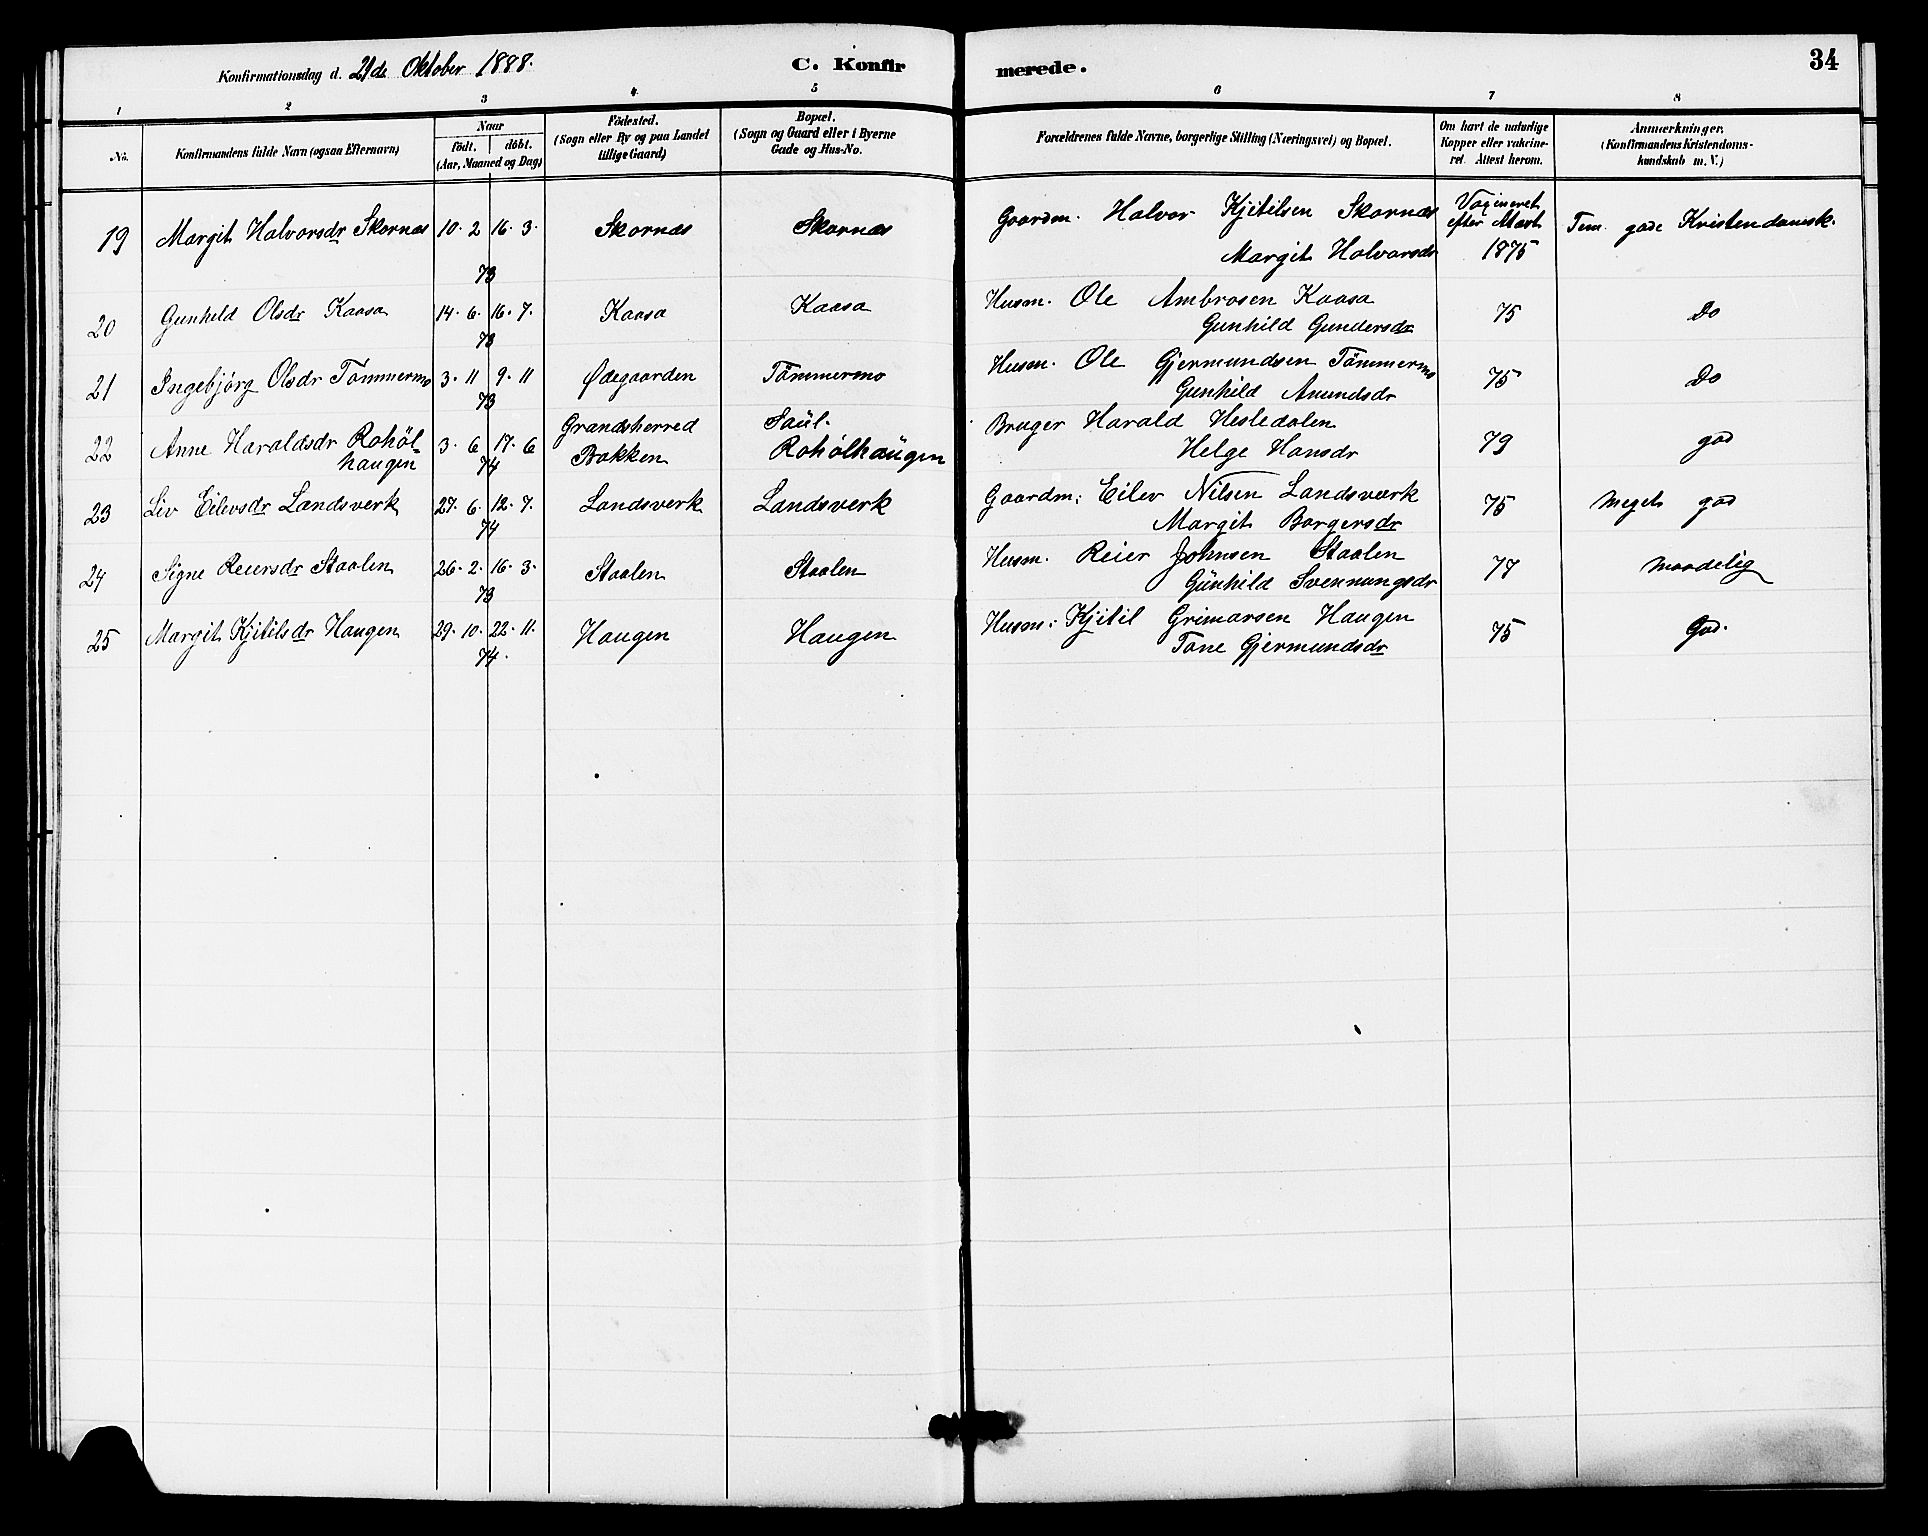 Konfirmationsdag d. 21de Oktober 1888.
C. Konfirmerede.
34
1 2 3 4 5 6 7 8
No.
Konfirmandens fulde Navn (ogsaa Efternavn)
Naar
født. døbt.
(Aar, Maaned og Dag)
Fødested.
(Sogn eller By og paa Landet
tillige Gaard)
Bopæl.
(Sogn og Gaard eller i Byerne
Gade og Hus-No.
Forældrenes fulde Navne, borgerlige Stilling (Næringsvei) og Bopæl.
Om havt de naturlige
Kopper eller vakcine-
ret. Attest herom.
Anmærkninger.
(Konfirmandens Kristendoms-
kundskab m. V.)
19 Margit Halvorsdr Skornes 10. 2 16. 3. 73 Skornæs Skornæs Gaardm. Halvor Kjitilsen Skornæs
Margit Halvorsdr
Vaqineret
efter Attest
1875
Tem. gode Kristendomsk.
20 Gunhild Olsdr Kaasa 14. 6. 16. 7. 73 Kaasa Kaasa Husm. Ole Ambrosen Kaasa
Gunhild Gundersdr
75 Do
21 Ingebjörg Olsdr Tömmermo 3. 11 9. 11 73 Ødegaarden Tömmermo Husm. Ole Gjermundsen Tömmermo
Gunhild Amundsdr
75 Do
22 Anne Haraldsdr Rohöl-
haugen
3. 6 17. 6 74 Grandsherred
Bakken
Saül.
Rohölhaügen
Bruger Harald Hesledalen
Helge Hansdr
79 god
23 Liv Eilevsdr Landsverk 27. 6. 12. 7. 74 Landsverk Landsverk Gaardm: Eilev Nilsen Landsværk
Margit Borgersdr
75 Meget god
24 Signe Reiersdr Staalen 26. 2. 16. 3. 73 Staalen Staalen Husm. Reier Johnsen Staalen
Günhild Svennungsdr
77 Maadelig
25 Margit Kjitilsdr Haugen 29. 10. 22. 11. 74. Haugen Haugen Husm: Kjitil Grimarsen Haugen
Tone Gjermundsdr
75 God.